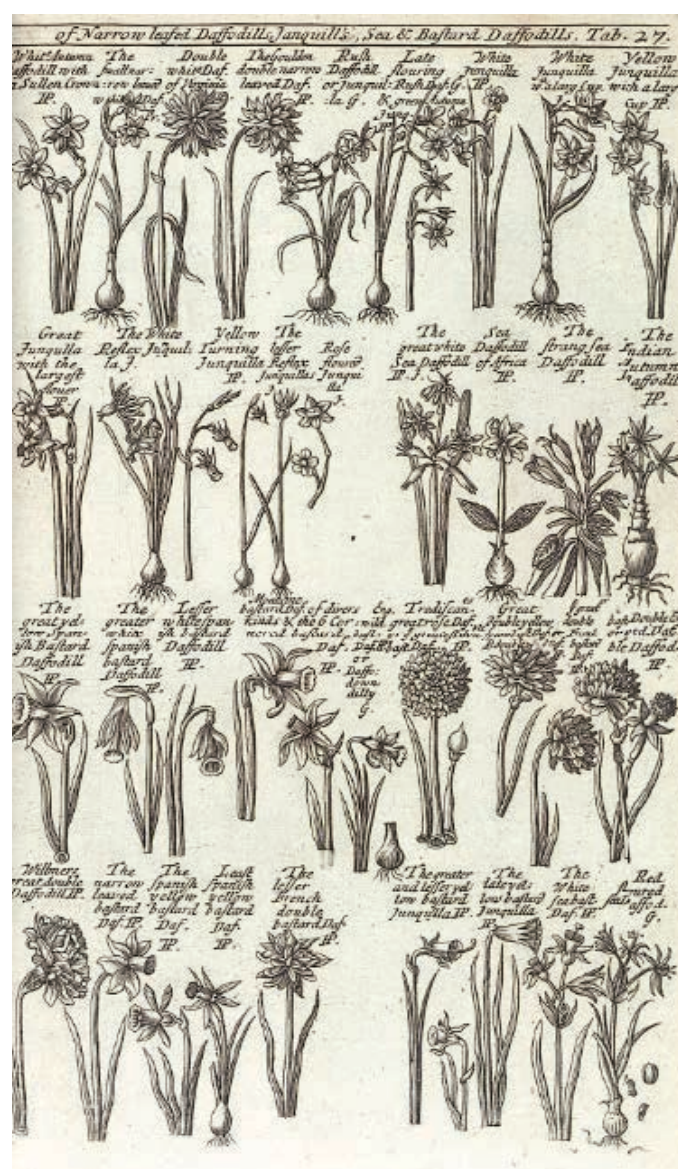 of Narrow leafed Daffodills, Janquills, Sea & Bastard Daffodills. Tab. 27.
White Autumn
affodill with
a Sullen Crown
IP.
The
Double
white Daf.
of Virginia
The Goulden
double narrow
leaved Daf.
IP.
Rush
Daffodill
or Junquil:
:la G.
Late
flouring
Rush Daf. G.
& green Autume
Jung
White
Junquilla
IP.
White
Junquilla
w. a larg Cup
Yellow
Junquilla
with a larg
Cup IP.
Great
Junqulla
with the
largest
flouer
IP.
The White
Reflex Juquil:
la J.
Yellow
Turning
Junquilla
IP.
The
lesser
Reflex
Junquillas
Rose
floured
Junqui
lla
J.
The
great white
Sea Daffodill
IP. J.
Sea
Daffodill
of Africa
IP.
The
strang sea
Daffodill
IP.
The
Indian
Autumn
affodill
IP.
The
great yel:
low Span:
ish Bastard
Daffodill
IP.
The
greater
white
spanish
bastard
Daffodill
IP.
Lesser
white span
ish bastard
Daffodill
IP.
bastard Daf. of divers
kinds & the 6 Cor:
nered bastard
Daf.
IP.
Eng.
wild
bast:
Daf.
or
Daffo:
down
dilly
G.
Tradiscan
great rose Daf.
IP.
Great
Double yellow
double
bastard
IP.
Double
ble Daffod.
IP.
Willmers
great double
Daffodill IP.
The
narrow
leaved
bastard
Daf. IP.
The
Spanish
yellow
bastard
Daf.
IP.
Least
spanish
yellow
bastard
Daf.
IP.
The
lesser
french
double
bastard Daf.
IP.
The greater
and lesser yel:
low bastard
Junquilla IP.
The
late yel:
low bastard
Junquilla
IP.
The
White
sea bast.
Daf. IP.
Red
floured
sea Daffod.
G.